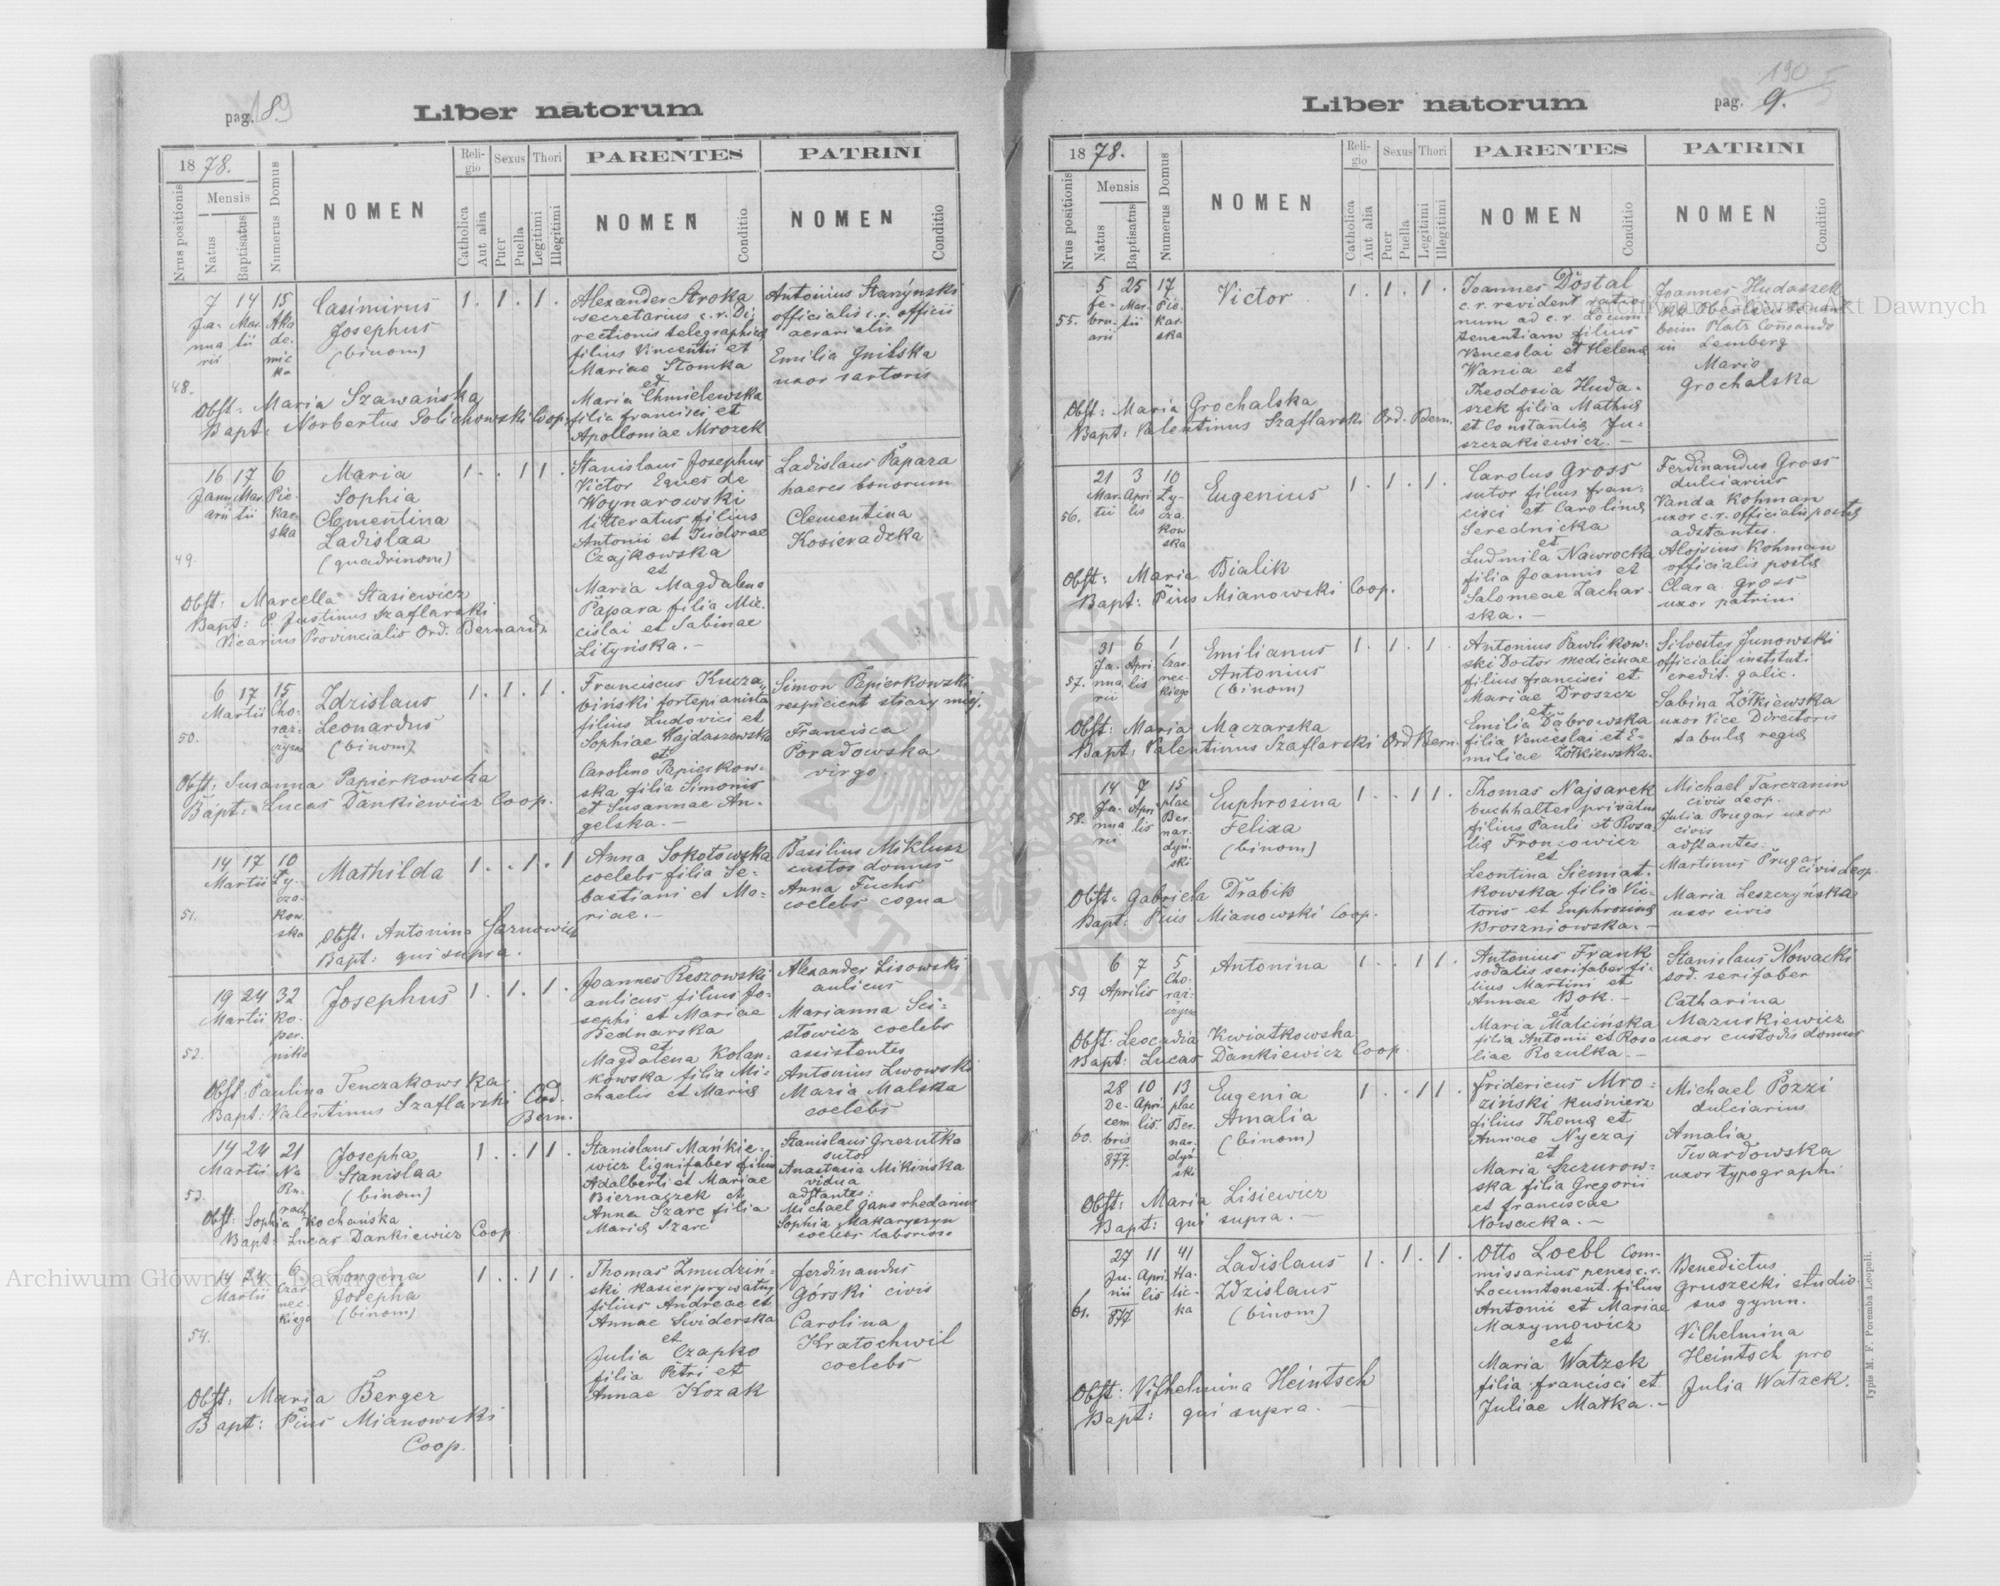 pag. 189
Liber natorum
1878.
Nrus positionis
Mensis
Natus
Baptisatus
Numerus Domus
NOMEN
Religio
Catholica
Aut alia
Sexus
Puer
Puella
Thori
Legitimi
Illegitimi
PARENTES
NOMEN
Conditio
PATRINI
NOMEN
Conditio
48.
7 Januarii
14 Martii
15 Akademicka
Casimirus
Josephus
(binom)
1 . 1 . 1 .
Alexander Stroka
secretarius c. r. Di-
rectionis telegraphicę
filius Vincentii et
Mariae Słomka
et
Maria Chmielewska
filia francisci et
Apolloniae Mrozek
Antonius
officialis c. r. officii
aerarialis
Emilia Gnilska
uxor sartoris
Obst: Maria Szawańska
Bapt: Norbertus Golichowski Coop.
49.
16 Januarii
17 Martii
6 Piekarska
Maria
Sophia
Clementina
Ladislaa
(quadrinom)
1 . . 1 1 .
Stanislaus Josephus
Victor Eques de
Woynarowski
litteratus filius
Antonii et Isidorae
Czajkowska
et
Maria Magdalena
Papara filia Mie-
cislai et Sabinae
Lityńska. —
Ladislaus Papara
haeres bonorum
Clementina
Kosieradzka
Obst: Marcella Stasiewicz
Bapt: P. Justinus Szaflarski
Vicarius Provincialis Ord. Bernard.
50.
6 17
Martii
15 Chorążczyzna
Zdzislaus
Leonardus
(binom)
1 . 1 . 1 .
Franciscus Kucza-
biński fortepianista
filius Ludovici et
Sophiae Wajdaszewska
et
Carolina Papierkow-
ska filia Simonis
et Susannae An-
gelska. —
Simon Papierkowski
respicient straży miej.
Francisca
Poradowska
virgo
Obst: Susanna Papierkowska
Bapt: Lucas Dankiewicz Coop.
51.
14 17
Martii
10 Łyczakowska
Mathilda
1 . . 1 . 1
Anna Sokołowska
coelebs filia Se-
bastiani et Ma-
riae. —
Basilius Miklusz
custos domus
Anna Fuchs
coelebs coqua
Obst. Antonina Sarnowicz
Bapt: qui supra.
52.
19 24
Martii
32 Kopernika
Josephus
1 . 1 . 1 .
Joannes Reszowski
aulicus filius Jo-
sephi et Mariae
Bednarska
et
Magdalena Kolan-
kowska filia Mi-
chaelis et Marię
Alexander Lisowski
aulicus
Marianna Sci-
słowicz coelebs
assistentes
Antonius Lwowski
Maria Malska
coelebs
Obst: Paulina Tenczakowska
Bapt: Valentinus Szaflarski Ord.
Bern.
53.
14 24
Martii
21
Josepha
Stanislaa
(binom)
1 . . 1 1 .
Stanislaus Mańkie-
wicz lignifaber filius
Adalberti et Mariae
Biernaczek et
Anna Szarc filia
Marię Szarc
Stanislaus Grezułka
sutor
Anastasia Mikińska
vidua
adstantes:
Michael Gans rhedarius
Sophia Makaryszyn
coelebs laboriosa
Obst: Sophia Kochańska
Bapt: Lucas Dankiewicz Coop
54.
14 24
Martii
6 Czarneckiego
Longina
Josepha
(binom)
1 . . 1 1 .
Thomas Żmudziń-
ski kasier prywatny
filius Andreae et
Annae Swiderska
et
Julia Czapko
filia Petri et
Annae Kozak
ferdinandus
Górski civis
Carolina
Kratochwil
coelebs
Obst: Maria Berger
Bapt: Pius Mianowski
Coop.
190
pag. 9.
Liber natorum
1878.
Nrus positionis
Mensis
Natus
Baptisatus
Numerus Domus
NOMEN
Religio
Catholica
Aut alia
Sexus
Puer
Puella
Thori
Legitimi
Illegitimi
PARENTES
NOMEN
Conditio
PATRINI
NOMEN
Conditio
55.
5 februarii
25 Martii
17 Piekarska
Victor
1 . 1 . 1 .
Joannes Dostal
c. r. revident ratio-
num ad c. r. Locum
tenentiam filius
Venceslai et Helenę
Wania et
Theodosia Huda-
szek filia Mathię
et Constantię Ju-
szczakiewicz. —
Joannes Hudaszek
KK Oberlieutenant
beim Platz Comando
in Lemberg
Maria
Grochalska
Obst: Maria Grochalska
Bapt: Valentinus Szaflarski Ord. Bern.
56.
21 Martii
3 Aprilis
10 Łyczakowska
Eugenius
1 . 1 . 1 .
Carolus Gross
sutor filius fran-
cisci et Carolinę
Serednicka
et
Ludmila Nawrocka
filia Joannis et
Salomeae Zachar-
ska. —
Ferdinandus Gross
dulciarius
Vanda Kohman
uxor c. r. officialis postę
adstantes:
Alojsius Kohman
officialis postę
Clara Gross
uxor patrini
Obst: Maria Bialik
Bapt: Pius Mianowski Coop.
57.
31 Januarii
6 Aprilis
1 Czarneckiego
Emilianus
Antonius
(binom)
1 . 1 . 1 .
Antonius Pawlikow-
ski Doctor medicinae
filius francisci et
Mariae Droszcz
et
Emilia Dąbrowska
filia Venceslai et E-
miliae Żółkiewska.
Silvester Junowski
officialis instituti
credit. galic.
Sabina Żółkiewska
uxor Vice Directoris
tabulę regię
Obst: Maria Maczarska
Bapt: Valentinus Szaflarski Ord Bern.
58.
14 Januarii
7 Aprilis
15 plac Bernardyński
Euphrosina
Felixa
(binom)
1 . . 1 1 .
Thomas Najsarek
buchhalter privatus
filius Pauli et Rosa-
lię Froncowicz
et
Leontina Siemiat-
kowska filia Vic-
toris et Euphrosinę
Broszniowska. —
Michael Tarczanin
civis Leop.
Julia Prugar uxor
civis
adstantes:
Martinus Prugar
civis Leop.
Maria Leszczyńska
uxor civis
Obst: Gabriela Drabik
Bapt: Pius Mianowski Coop.
59
6 7
Aprilis
5 Chorążczyzna
Antonina
1 . . 1 1 .
Antonius Frank
sodalis serifaber fi-
lius Martini et
Annae Bok. —
et
Maria Malcińska
filia Antonii et Rosa
liae Rozulka. —
Stanislaus Nowacki
sod. serifaber
Catharina
Mazuskiewicz
uxor custodis domus
Obst: Leocadia Kwiatkowska
Bapt: Lucas Dankiewicz Coop.
60.
28 Decembris 877.
10 Aprilis
13 plac Bernardyński
Eugenia
Amalia
(binom)
1 . . 1 1 .
Fridericus Mro-
ziński kuśnierz
filius Thomę et
Annae Nyczaj
et
Maria Szczurow-
ska filia Gregorii
et franciscae
Nowacka. —
Michael Pozzi
dulciarius
Amalia
Twardowska
uxor typographi
Obst: Maria Lisiewicz
Bapt: qui supra. —
61.
27 Junii 877
11 Aprilis
41 Halicka
Ladislaus
Zdzislaus
(binom)
1 . 1 . 1 .
Otto Loebl Com-
missarius penes c. r.
Locumtenent. filius
Antonii et Mariae
Maxymowicz
et
Maria Watzek
filia francisci et
Juliae Matka. —
Benedictus
Gruszecki studio-
sus gymn.
Vilhelmina
Heintsch pro
Julia Watzek.
Obst: Vilhelmina Heintsch
Bapt: qui supra. —
Typis M. F. Poremba Leopoli.
Archiwum Główne Akt Dawnych
Archiwum Główne Akt Dawnych
ARCHIWUM GŁÓWNE AKT DAWNYCH